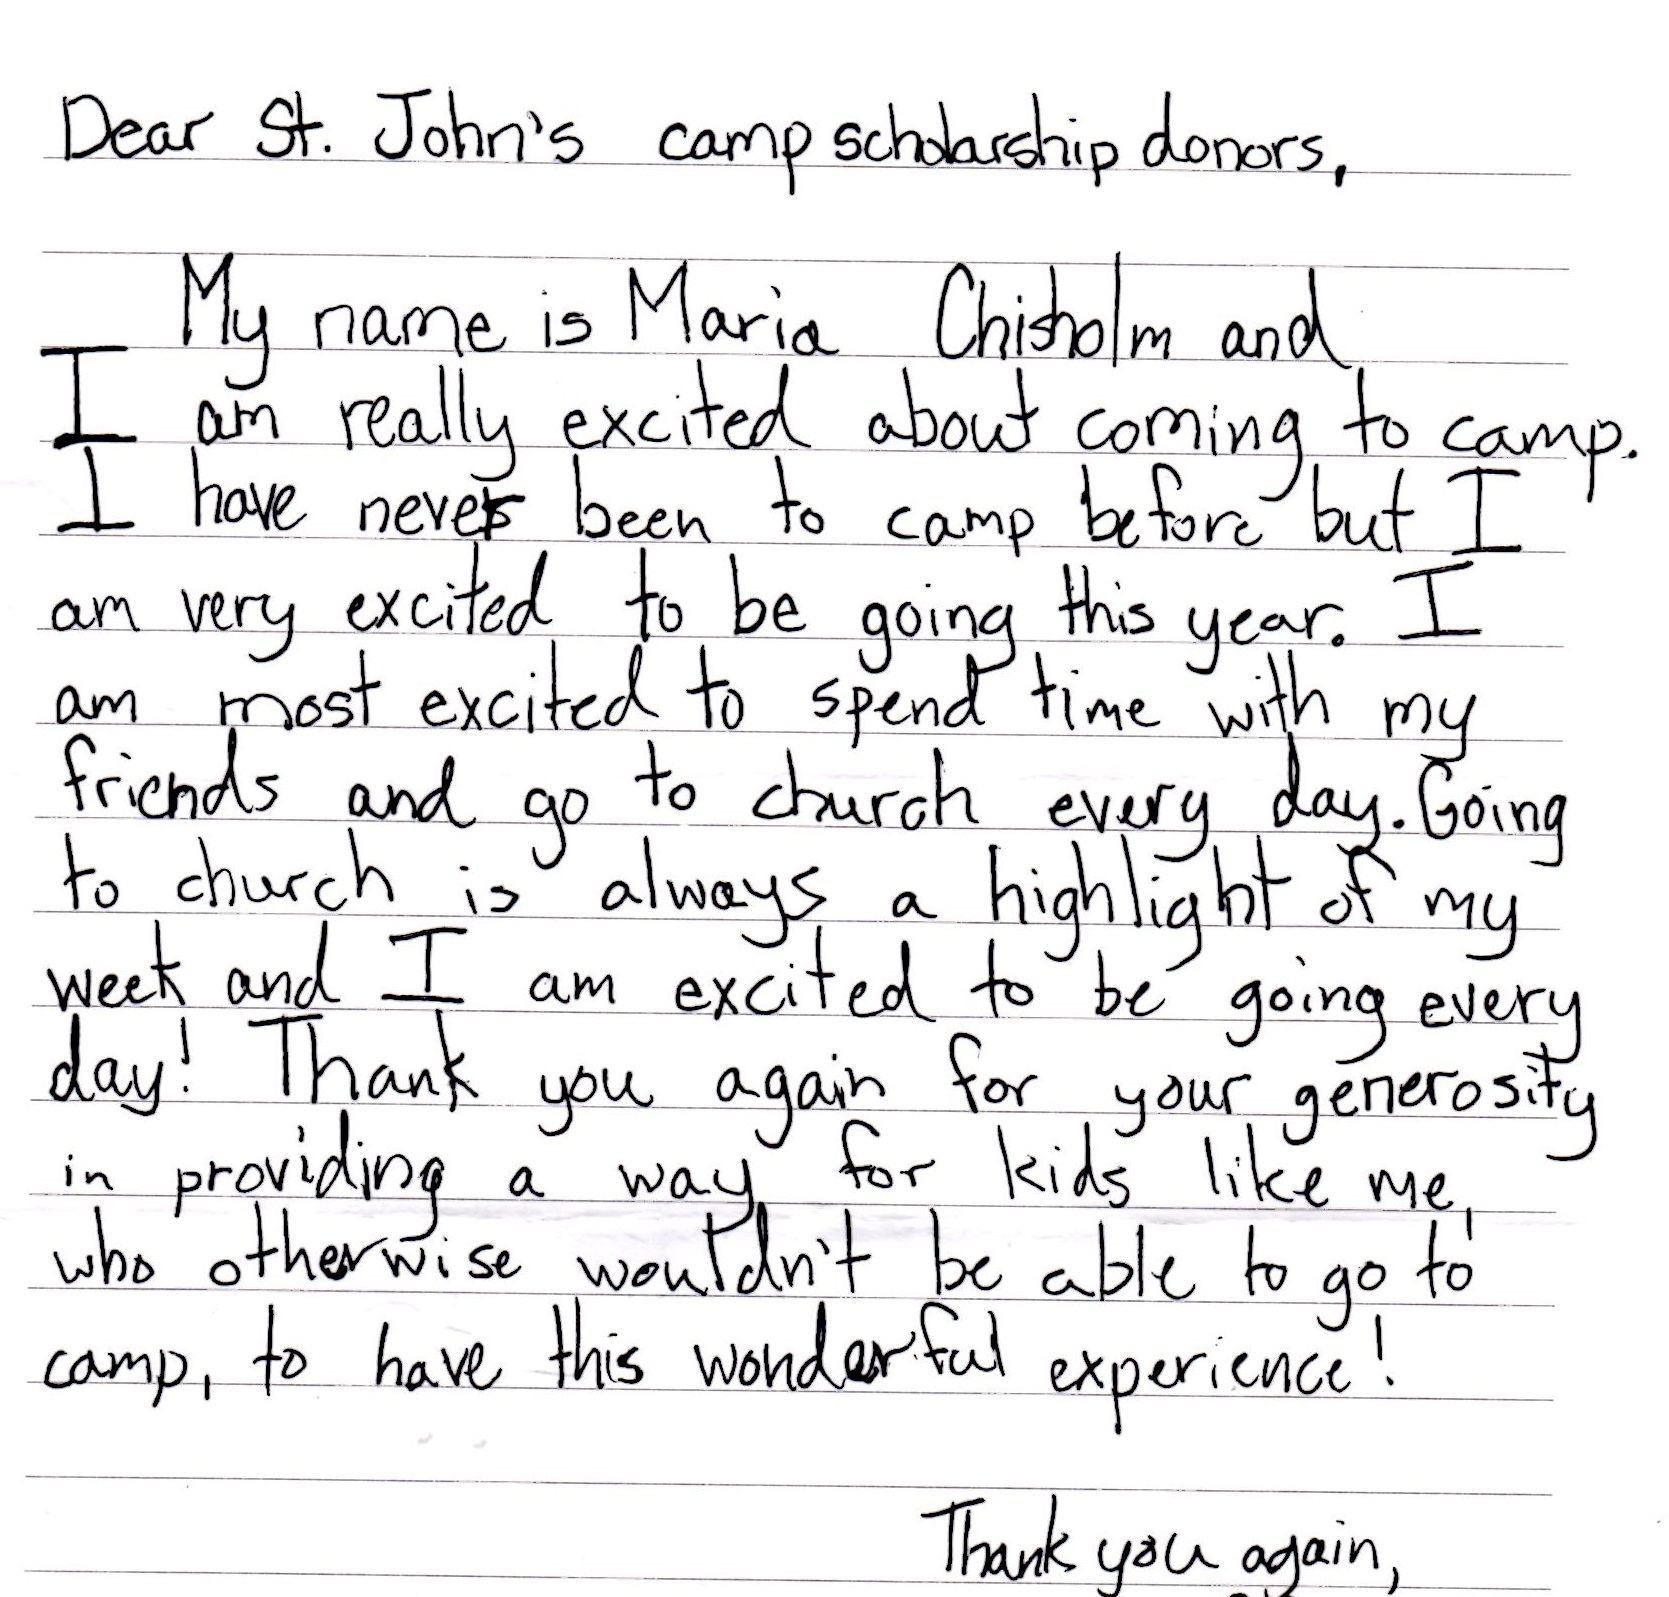 Dear St. John's camp scholarship donors,
My name is Maria Chisholm and
I am really excited about coming to camp.
I have never been to camp before but I
am very excited to be going this year. I
am most excited to spend time with my
friends and go to church every day. Going
to church is always a highlight of my
week and I am excited to be going every
day! Thank you again for your generosity
in providing a way for kids like me,
who otherwise wouldn't be able to go to
camp, to have this wonderful experience!
Thank you again,